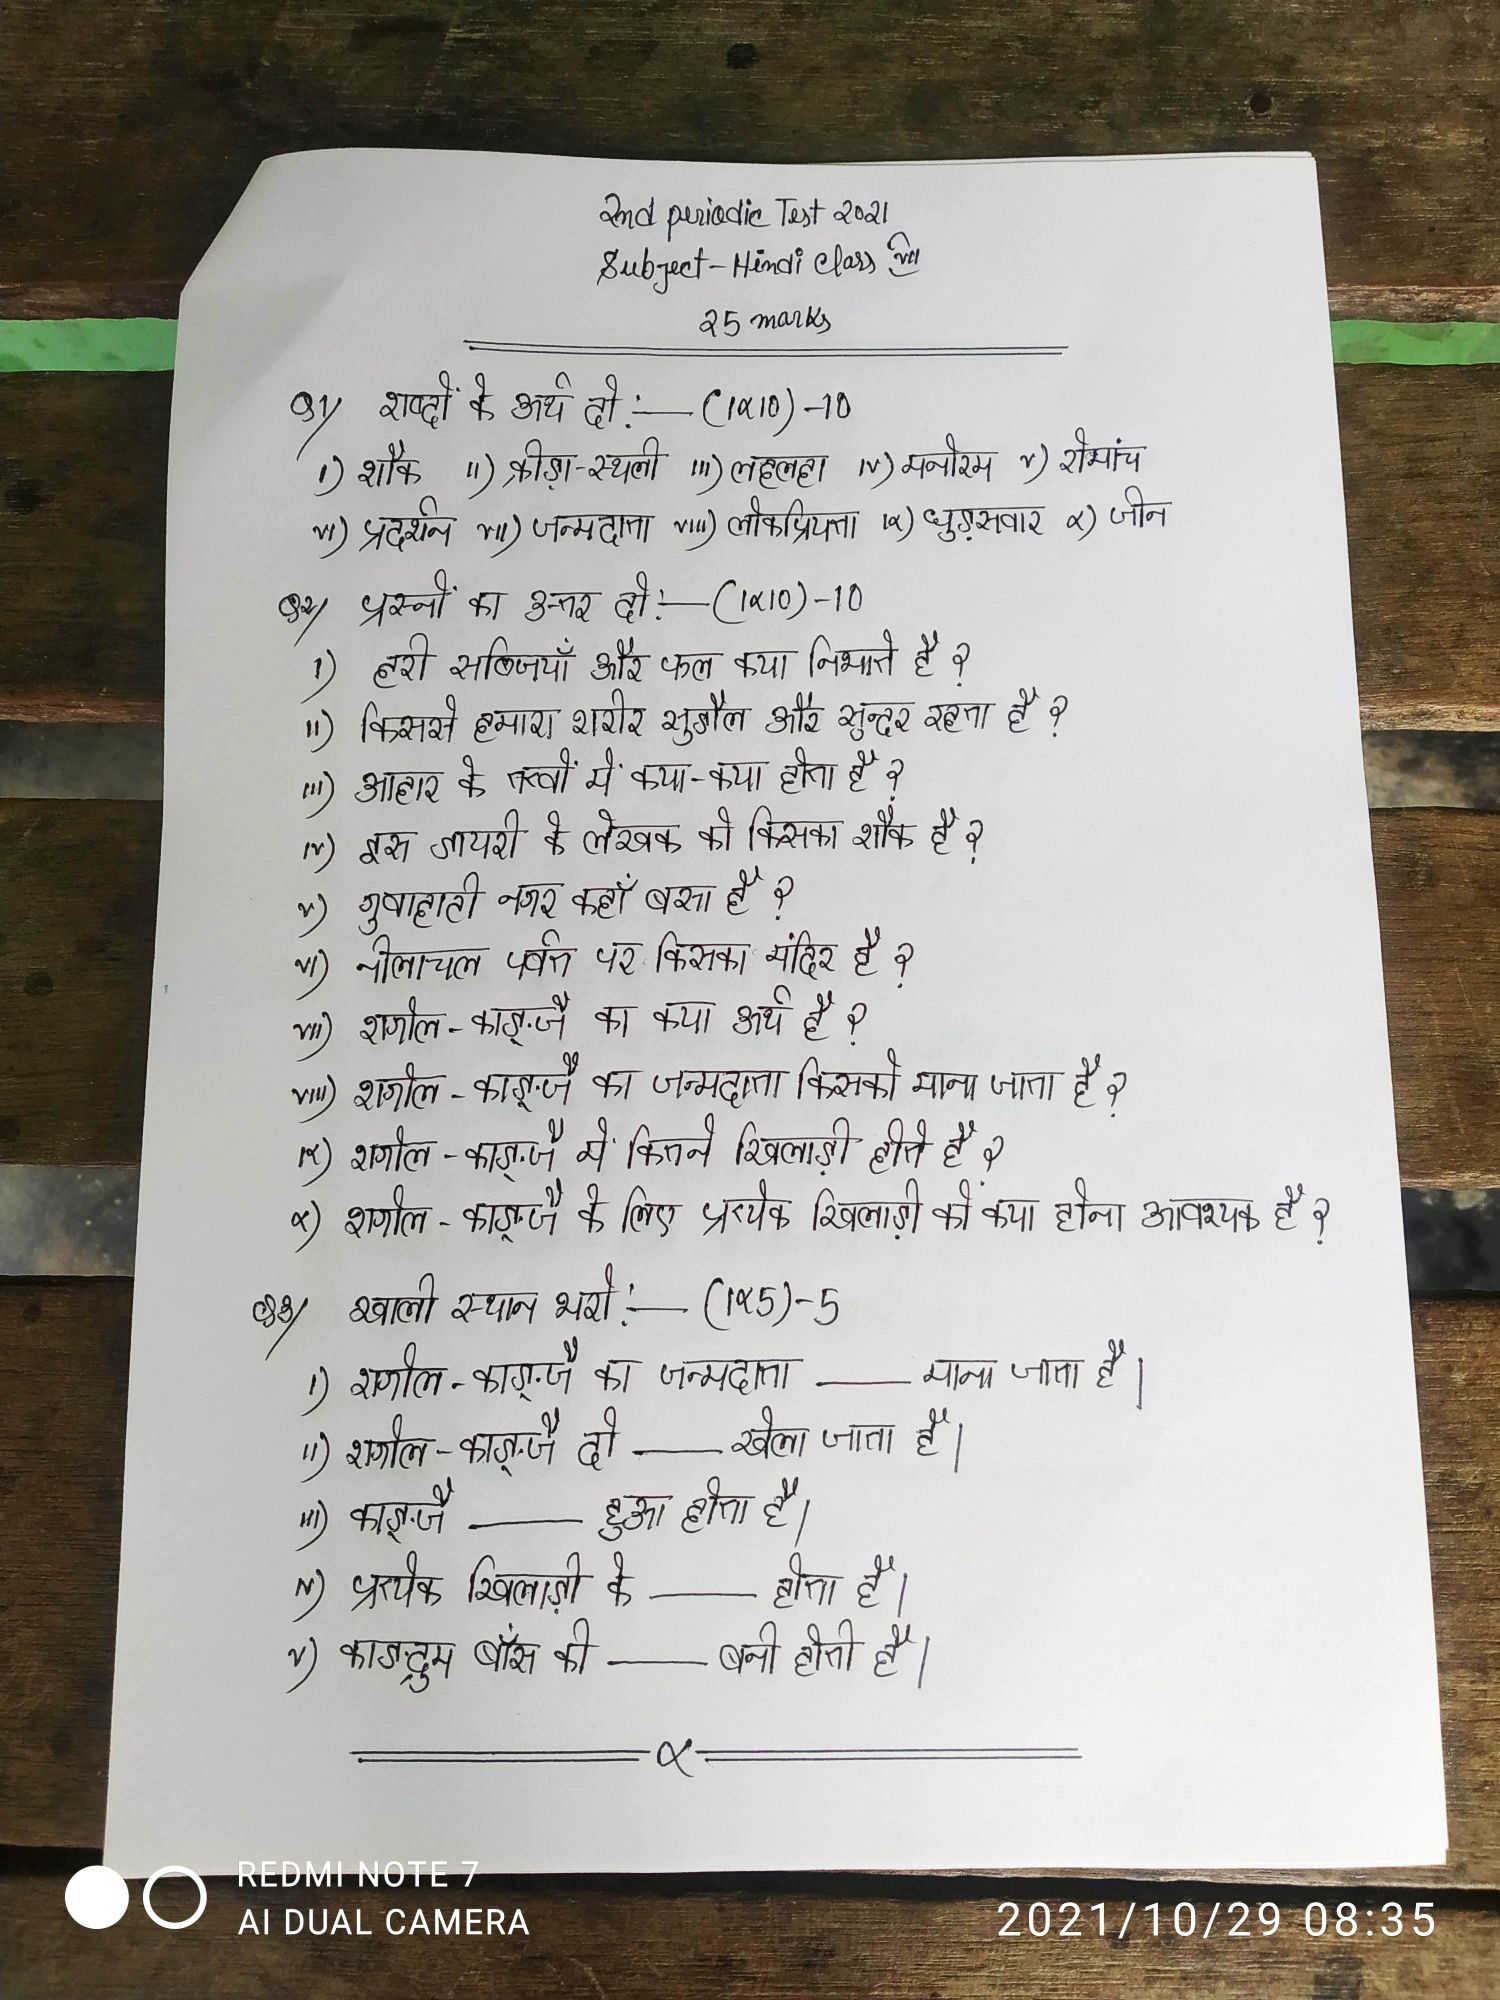 2nd periodic Test 2021
Subject-Hindi Class VII
25 marks
Q1/ शब्दों के अर्थ दो:— (1x10)-10
i) शौक ii) क्रीड़ा-स्थली iii) लहलहा iv) मनोरम v) रोमांच
vi) प्रदर्शन vii) जन्मदाता viii) लोकप्रियता ix) घुड़सवार x) जीन
Q2/ प्रस्नों का उत्तर दो:—(1x10)-10
i) हरी सब्जियाँ और फल क्या निभाते है ?
ii) किससे हमारा शरीर सुडौल और सुन्दर रहता है ?
iii) आहार के तत्वों में क्या-क्या होता है ?
iv) इस डायरी के लेखक को किसका शौक है ?
v) गुवाहाटी नगर कहाँ बसा है ?
vi) नीलाचल पर्वत पर किसका मंदिर है ?
vii) शगोल-काङ्जै का क्या अर्थ है ?
viii) शगोल-काङ्जै का जन्मदाता किसको माना जाता है ?
ix) शगोल-काङ्जै में कितने खिलाड़ी होते है ?
x) शगोल-काङ्जै के लिए प्रत्येक खिलाड़ी को क्या होना आवश्यक है ?
Q3/ खाली स्थान भरो:— (1x5)-5
i) शगोल-काङ्जै का जन्मदाता ____ माना जाता है।
ii) शगोल-काङ्जै दो ____ खेला जाता है।
iii) काङ्जै ____ हुआ होता है।
iv) प्रत्येक खिलाड़ी के ____ होता है।
v) काङद्रुम बाँस की ____ बनी होती है।
x
REDMI NOTE 7
AI DUAL CAMERA
2021/10/29 08:35